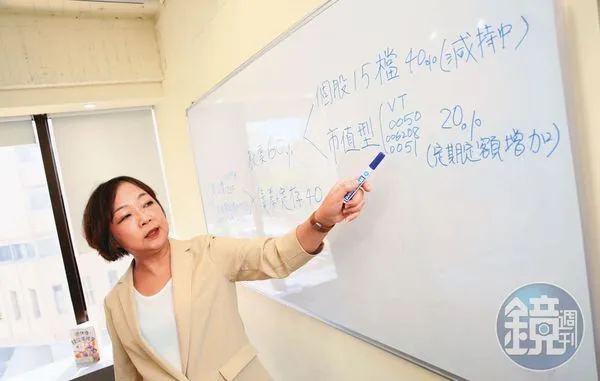 個股15檔40%(減持中)
市值型
VT
0050
006208
0051
20%
(定期定額增加)
60%
定存40
鏡週刊